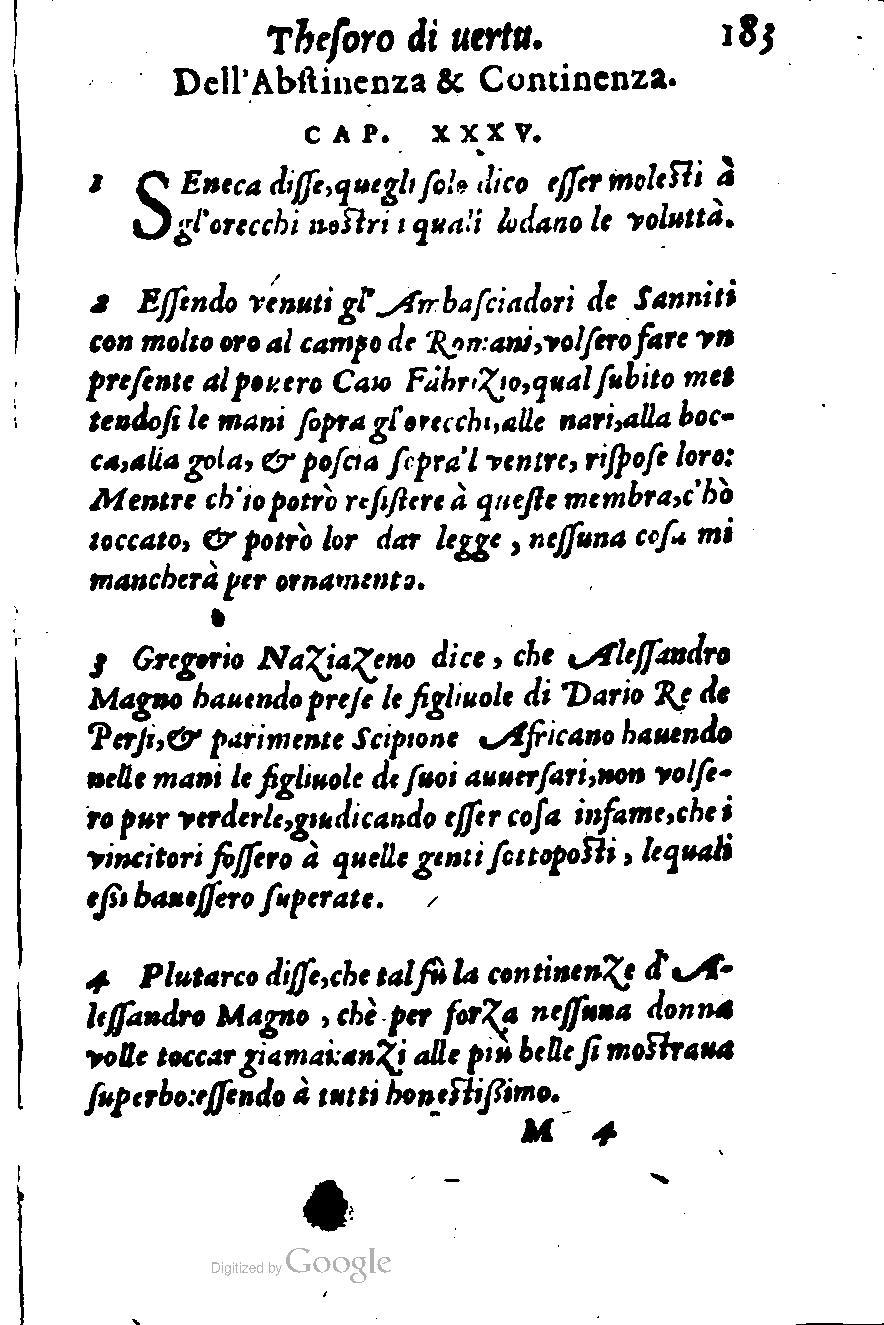 Theſoro di uertu. 183
Dell'Abſtinenza & Continenza.
CAP. XXXV.
1 SEneca diſſe,quegli ſolo dico eſſer moleſti à
gl'orecchi noſtri i quali lodano le voluttà.
2 Eſſendo venuti gl' Ambaſciadori de Sanniti
con molto oro al campo de Romani,volſero fare vn
preſente al pouero Caio Fabrizio,qual ſubito met
tendoſi le mani ſopra gl'orecchi,alle nari,alla boc-
ca,alla gola, & poſcia ſopra'l ventre, riſpoſe loro:
Mentre ch'io potrò reſiſtere à queſte membra,c'hò
toccato, & potrò lor dar legge , neſſuna coſa mi
mancherà per ornamento.
3 Gregorio NaZiaZeno dice , che Aleſſandro
Magno hauendo preſe le figliuole di Dario Re de
Perſi,& parimente Scipione Africano hauendo
nelle mani le figliuole de ſuoi auuerſari,non volſe-
ro pur verderle,giudicando eſſer coſa infame,che i
vincitori foſſero à quelle genti ſottopoſti , lequali
eſſi haueſſero ſuperate.
4 Plutarco diſſe,che tal fù la continenZe d' A-
leſſandro Magno , chè per forZa neſſuna donna
volle toccar giamai:anZi alle più belle ſi moſtraua
ſuperbo:eſſendo à tutti honeſtiſſimo.
M 4
Digitized by Google